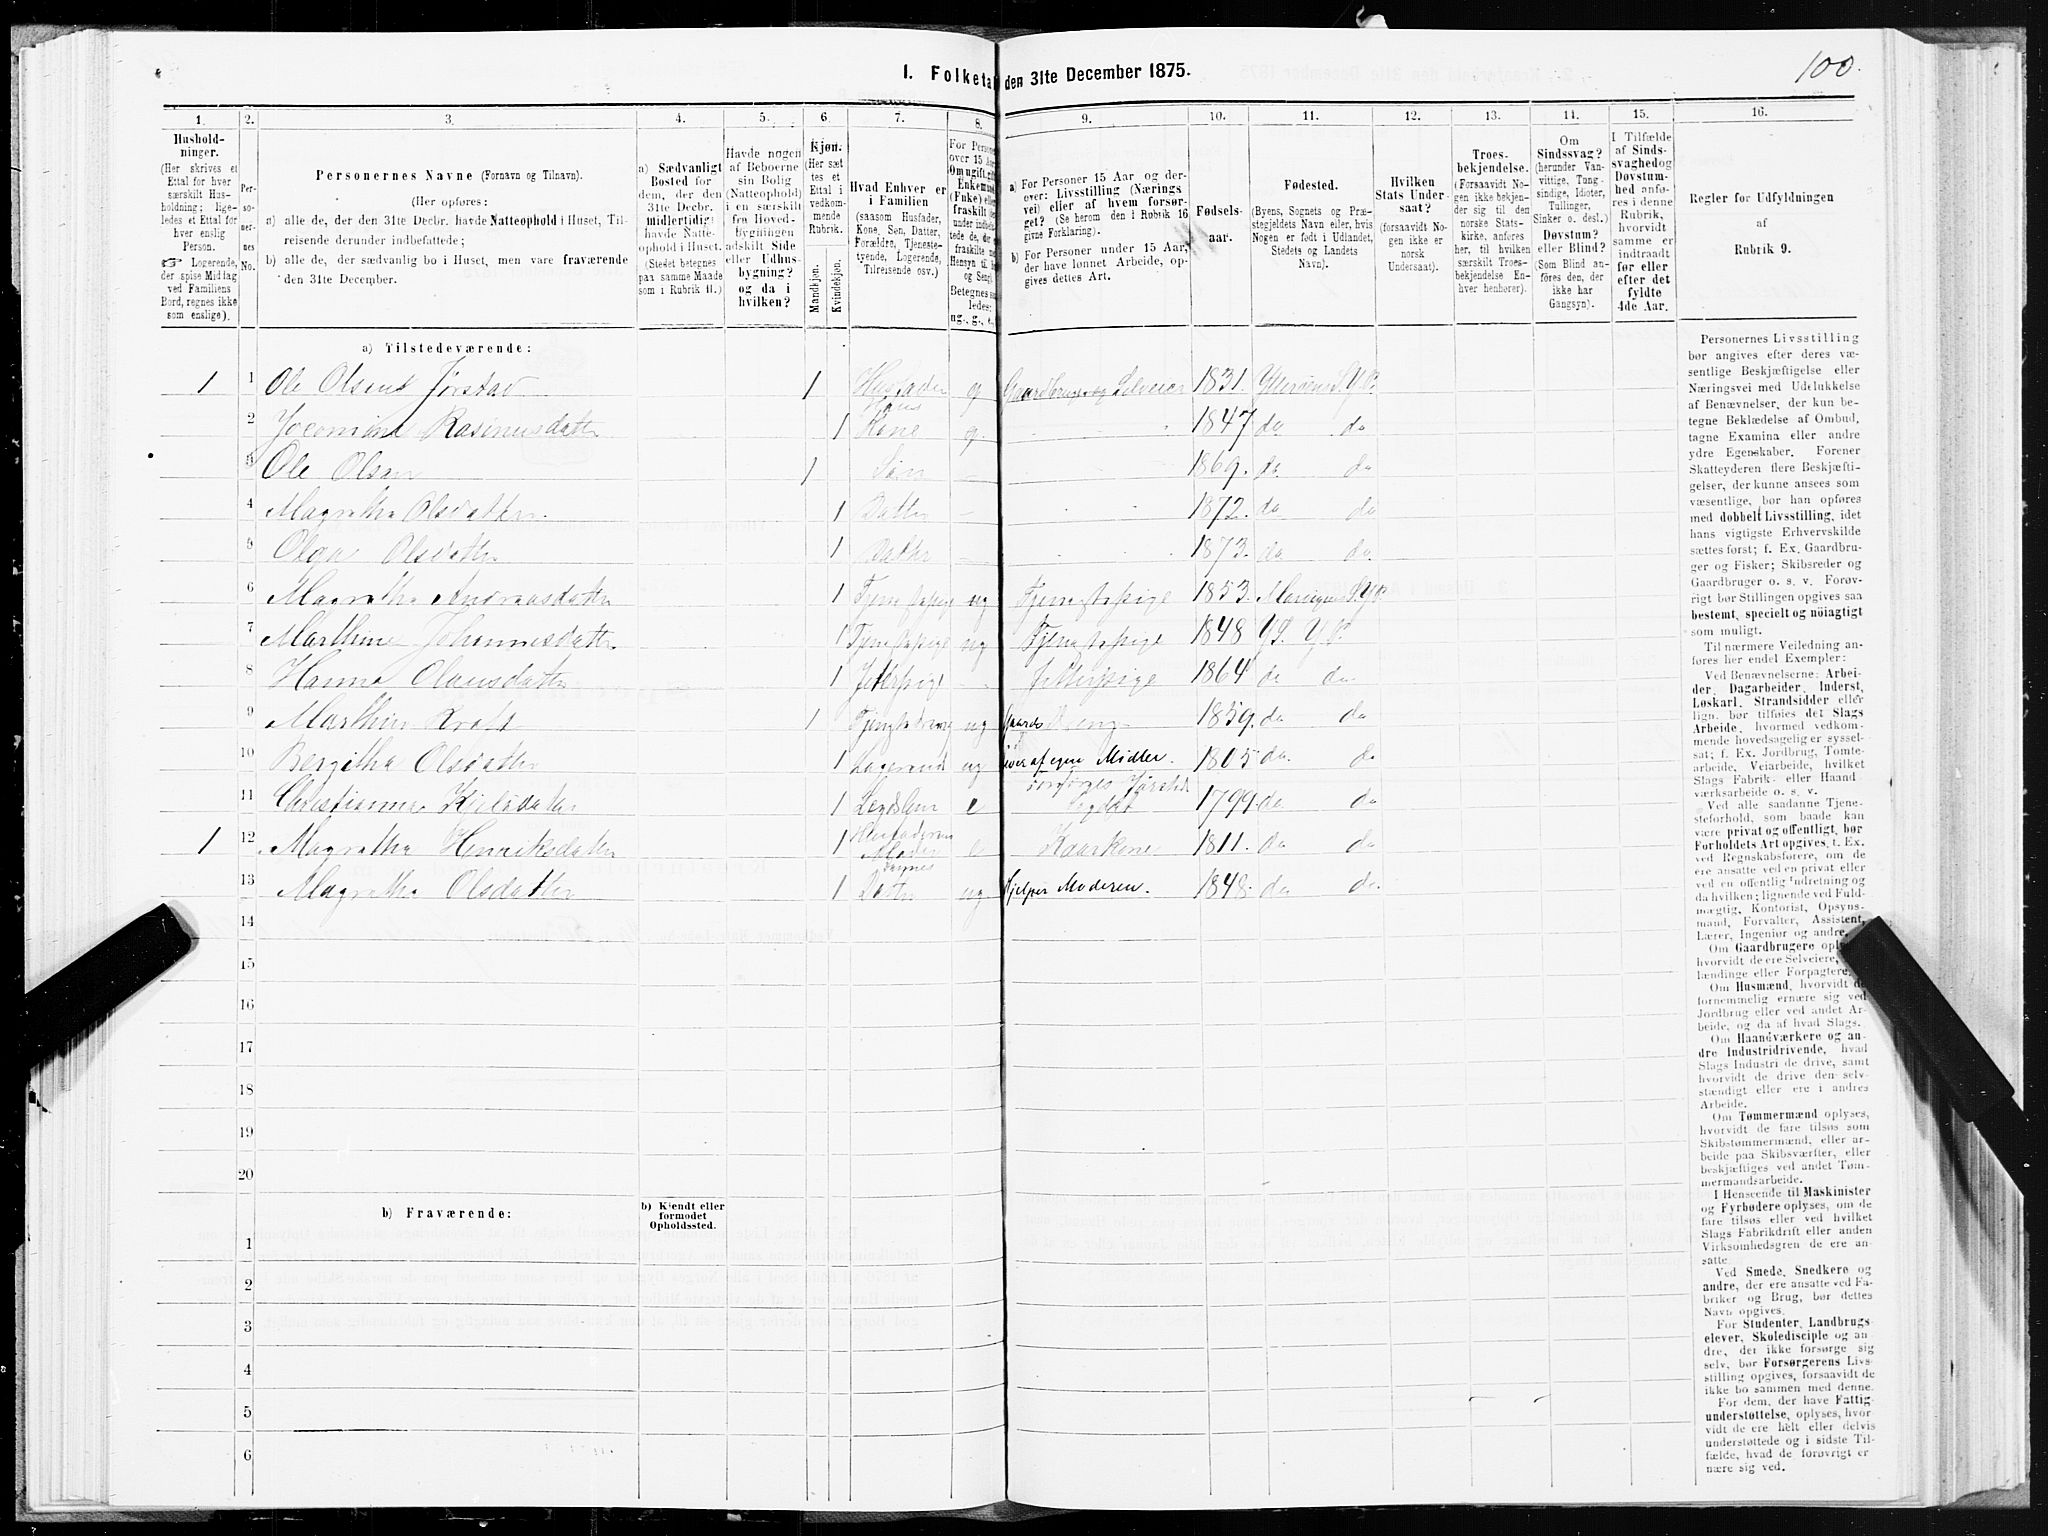 100.
I. Folketal den 31te December 1875.
1. 2. 3. 4. 5. 6. 7. 8. 9. 10. 11. 12. 13. 14. 15. 16.
Husholdninger.
(Her skrives et Ettal for hver særskilt Husholdning; ligeledes et Ettal for hver enslig Person.
☞ Logerende, der spise Middag ved Familiens Bord, regnes ikke som enslige).
Personernes No.
Personernes Navne (Fornavn og Tilnavn).
(Her opføres:
a) alle de, der den 31te Decbr. havde Natteophold i Huset, Tilreisende derunder indbefattede;
b) alle de, der sædvanlig bo i Huset, men vare fraværende den 31te December.
a) Sædvanligt Bosted for dem, der den 31te Decbr. midlertidig havde Natteophold i Huset.
(Stedet betegnes paa samme Maade som i Rubrik 11.)
Havde nogen af Beboerne sin Bolig (Natteophold) i en særskilt fra Hovedbygningen adskilt Side eller Udhusbygning? og da i hvilken?
Kjøn.
(Her sættes et Ettal i vedkommende Rubrik.
Mandkjøn. Kvindekjøn.
Hvad Enhver er i Familien
(saasom Husfader, Kone, Søn, Datter, Forældre, Tjenestetyende, Logerende, Tilreisende osv.)
a) For Personer 15 Aar og derover: Livsstilling (Næringsvei) eller af hvem forsørget? (Se herom den i Rubrik 16 givne Forklaring).
b) For Personer under 15 Aar, der have lønnet Arbeide, opgives dettes Art.
Fødselsaar.
Fødested.
(Byens, Sognets og Præstegjeldets Navn eller, hvis Nogen er født i Udlandet, Stedets og Landets Navn).
Hvilken Stats Undersaat?
(forsaavidt Nogen ikke er norsk Undersaat).
Troesbekjendelse.
(Forsaavidt Nogen ikke bekjender sig til den norske Statskirke, anføres her, til hvilken særskilt Troesbekjendelse Enhver henhører).
Om Sindssvag? (herunder Vanvittige, Tungsindige, Idioter, Tullinger, Sinker o. desl.) Døvstum? eller Blind?
(Som Blind anføres den, der ikke har Gangsyn).
I Tilfælde af Sindssvaghed og Døvstumhed anføres i denne Rubrik, hvorvidt samme er indtraadt før eller efter det fyldte 4de Aar.
Regler for Udfyldningen af Rubrik 9.
a) Tilstedeværende:
1 1 Ole Olsens Jørstad 1 Husfader g Gaardbruger og Selveier 1831.
2 Rasmusdatter 1 Hans Kone g. 1847 do do
3 Ole Olsen 1 Søn 1869. do. do
4 Magretha Olsdatter 1 Datter 1872. do do
5 Olga Olsdatter 1 Datter 1873. do do
6 Magretha Andreasdatter 1 Tjenestepige ug Tjenestepige 1853.
7 Marthine Johannesdatter 1 Tjenestepige ug Tjenestepige 1848
8 Hanna Olausdatter 1 Jeterpige Jeterpige 1864 do do
9 Marthin 1 ug Gaards 1859. do do
10 Bergitha Olsdatter 1 ug lever af egne Midler. 1805 do. do
11 Christianna 1 e 1799. do do
1 12 Magretha Henriksdatter 1 Husfaderens Moder e Kaarkone 1811. do do
13 Magretha Olsdatter 1 Datter ug hjelper Moderen. 1848. do do.
14
15
16
17
18
19
20
b) Fraværende:
b) Kjendt eller formodet Opholdssted.
1
2
3
4
5
6
Personernes Livsstilling
bør angives efter deres væsentlige Beskjæftigelse eller
Næringsvei med Udelukkelse
af Benævnelser, der kun betegne Beklædelse af Ombud,
tagne Examina eller andre
ydre Egenskaber. Forener
Skatteyderen flere Beskjæftigelser, der kunne ansees som
væsentlige, bør han opføres
med dobbelt Livsstilling, idet
hans vigtigste Erhvervskilde
sættes først; f. Ex. Gaardbruger og Fisker; Skibsreder og
Gaardbruger o. s. v. Forøvrigt bør Stillingen opgives saa
bestemt, specielt og nöiagtigt
som muligt.
Til nærmere Veiledning anføres her endel Exempler:
Ved Benævnelserne: Arbeider, Dagarbeider, Inderst,
Løskarl, Strandsidder eller
lign. bør tilføies det Slags
Arbeide, hvormed vedkommende hovedsagelig er sysselsat; f. Ex. Jordbrug, Tomtearbeide, Veiarbeide, hvilket
Slags Fabrik- eller Haandværksarbeide o. s. v.
Ved alle saadanne Tjenesteforhold, som baade kan
være privat og offentligt, bør
Forholdets Art opgives, f. Ex.
ved Regnskabsførere, om de
ere ansatte ved en privat eller
ved en offentlig Indretning og
da hvilken; lignende ved Fuldmægtig, Kontorist, Opsynsmand, Forvalter, Assistent,
Lærer, Ingeniør og andre.
Om Gaardbrugere oplyses,
hvorvidt de ere Selveiere,
Om Husmænd, hvorvidt de
fornemmelig ernære sig ved
Jordbrug eller ved andet Arbeide, og da af hvad Slags.
Om Haandværkere og andre Industridrivende, hvad
Slags Industri de drive, samt
hvorvidt de drive den selvstændigt eller ere i andres
Arbeide.
Om Tømmermænd oplyses,
hvorvidt de fare tilsøs som
Skibstømmermænd, eller arbeide paa Skibsværfter, eller
beskjæftiges ved andet Tømmermandsarbeide.
I Henseende til Maskinister
og Fyrbødere oplyses, om de
fare tilsøs eller ved hvilket
Slags Fabrikdrift eller anden
Virksomhedsgren de ere ansatte.
Ved Smede, Snedkere og
andre, der ere ansatte ved Fabriker og Brug, bør dettes
Navn opgives.
For Studenter, Landbrugselever, Skoledisciple og andre, der ikke forsørge sig
selv, bør Forsørgerens Livsstilling opgives, forsaavidt de
ikke bo sammen med denne.
For dem, der have Fattigunderstøttelse, oplyses, hvorvidt de ere helt eller delvis
understøttede og i sidste Tilfælde, hvad de forøvrigt er
nære sig ved.